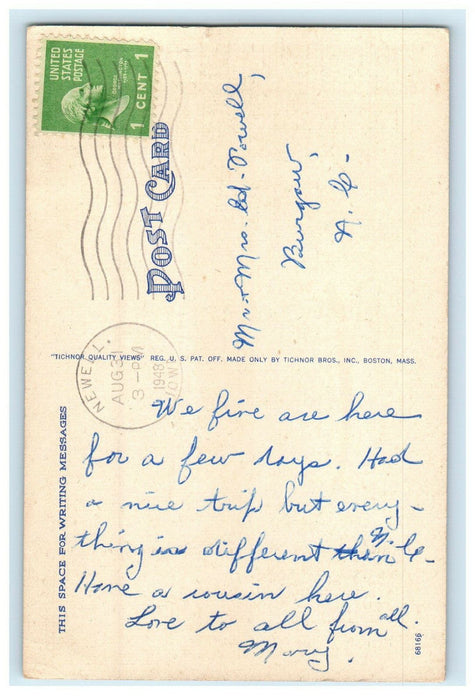 UNITED
STATES
POSTAGE
1 CENT 1
POST CARD
Mr & Mrs. Ed. Powell,
Burgaw,
N. C-
"TICHNOR QUALITY VIEWS" REG. U. S. PAT. OFF. MADE ONLY BY TICHNOR BROS., INC., BOSTON, MASS.
NEWELL,
AUG 31
3-PM
1948
IOWA
THIS SPACE FOR WRITING MESSAGES
We five are here
for a few days. Had
a nice trip but every-
thing is different than N. C-
Have a cousin here.
Love to all from all.
Mary.
68166